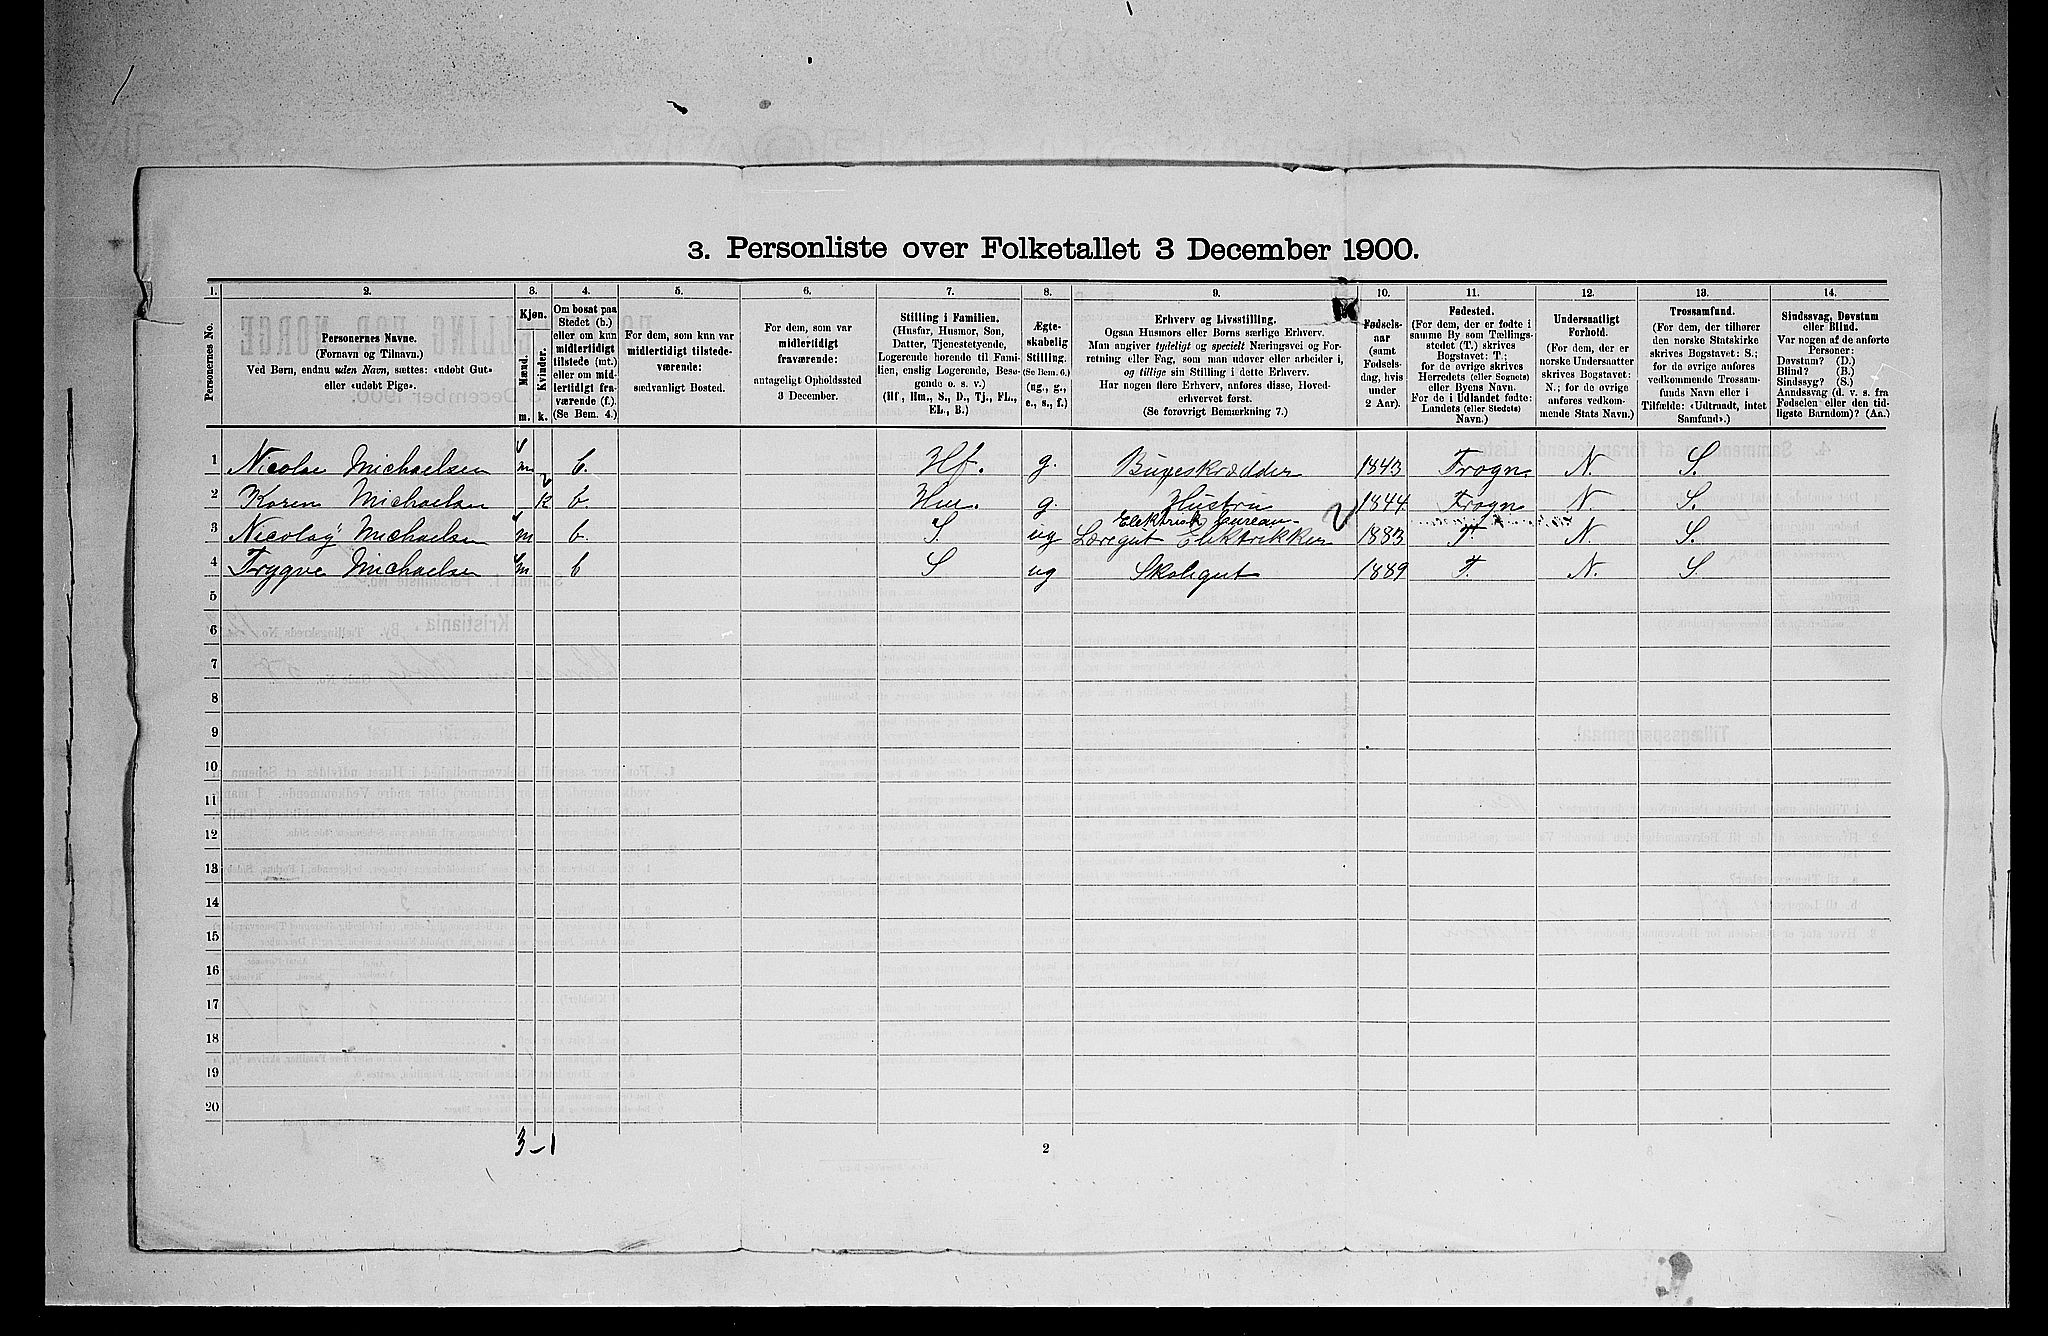 3. Personliste over Folketallet 3 December 1900.
1. 2. 3. 4. 5. 6. 7. 8. 9. 10. 11. 12. 13. 14.
Personernes No.
Personernes Navne.
(Fornavn og Tilnavn.)
Ved Børn, endnu uden Navn, sættes: «udøbt Gut»
eller «udøbt Pige».
Kjøn.
Mænd.
Kvinder.
m. k.
Om bosat paa
Stedet (b.)
eller om kun
midlertidigt
tilstede (mt.)
eller om mid-
lertidigt fra-
værende (f.).
(Se Bem. 4.)
For dem, som kun var
midlertidigt tilstede-
værende:
sædvanligt Bosted.
For dem, som var
midlertidigt
fraværende:
antageligt Opholdssted
3 December.
Stilling i Familien.
(Husfar, Husmor, Søn,
Datter, Tjenestetyende,
Logerende hørende til Fami-
lien, enslig Logerende, Besø-
gende o. s. v.)
(Hf., Hm., S., D., Tj., FL.,
EL., B.)
Ægte-
skabelig
Stilling.
(Se Bem. 6.)
(ug., g.,
e., s., f.)
Erhverv og Livsstilling.
Ogsaa Husmors eller Børns særlige Erhverv.
Man angiver tydeligt og specielt Næringsvei og For-
retning eller Fag, som man udøver eller arbeider i,
og tillige sin Stilling i dette Erhverv.
Har nogen flere Erhverv, anføres disse, Hoved-
erhvervet først.
(Se forøvrigt Bemærkning 7.)
Fødsels-
aar
(samt
Fødsels-
dag, hvis
under
2 Aar).
Fødested.
(For dem, der er fødte i
samme By som Tællings-
stedet (T.) skrives
Bogstavet: T.;
for de øvrige skrives
Herredets (eller Sognets)
eller Byens Navn.
For de i Udlandet fødte:
Landets (eller Stedets)
Navn.)
Undersaatligt
Forhold.
(For dem, der er
norske Undersaatter
skrives Bogstavet:
N.; for de øvrige
anføres vedkom-
mende Stats Navn.)
Trossamfund.
(For dem, der tilhører
den norske Statskirke
skrives Bogstavet: S.;
for de øvrige anføres
vedkommende Trossam-
funds Navn eller i
Tilfælde: «Udtraadt, intet
Samfund».)
Sindssvag, Døvstum
eller Blind.
Var nogen af de anførte
Personer:
Døvstum? (D.)
Blind? (B.)
Sindssyg? (S.)
Aandssvag (d. v. s. fra
Fødselen eller den tid-
ligste Barndom)? (Aa.)
1 Nicolae Michaelsen m b. Hf. g. Bugeskrædder 1843 Frogn N. S.
2 Karen Michaelsen k b. Hu. g. Hustru 1844 Frogn N. S.
Elektrisk bureau
3 Nicolay Michaelsen m b. S ug Læregut Elektrikker 1883 T. N. S.
4 Trygve Michaelsen m b S ug Skolegut 1889 T. N. S.
5
6
7
8
9
10
11
12
13
14
15
16
17
18
19
20
3-1
2